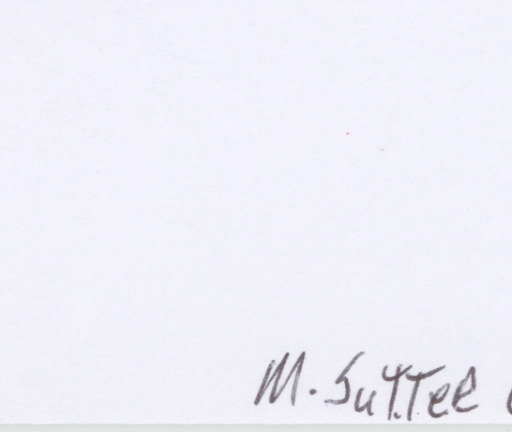 M. Sutter